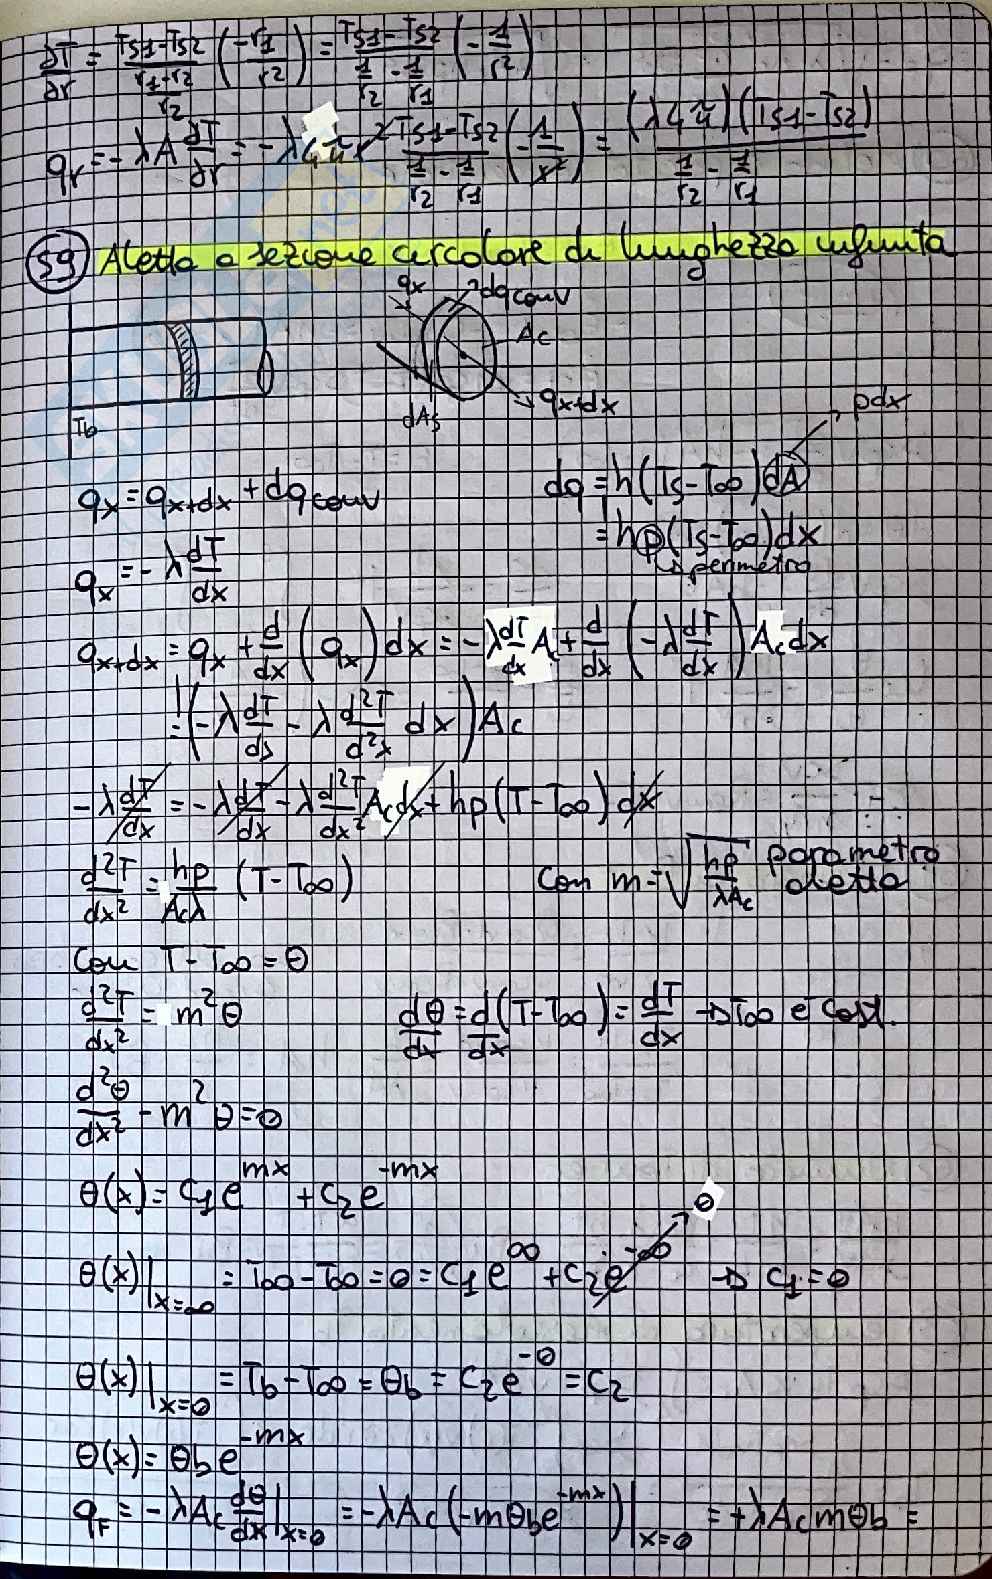 ∂T/∂r = (Ts1-Ts2)/((r1-r2)/r2) (-r1/r²) = (Ts1-Ts2)/(1/r2 - 1/r1) (-1/r²)
qr = -λA ∂T/∂r = -λ4π r² (Ts1-Ts2)/(1/r2 - 1/r1) (-1/r²) = (λ4π)(Ts1-Ts2)/(1/r2 - 1/r1)
59 Aletta a sezione circolare di lunghezza infinita
qx dqconv
Ac
qx+dx
dAs
Tb
pdx
qx = qx+dx + dqconv dq = h(Ts-T∞)dA
= hp(Ts-T∞)dx
↳ perimetro
qx = -λ dT/dx
qx+dx = qx + d/dx (qx) dx = -λ dT/dx Ac + d/dx (-λ dT/dx) Ac dx
= (-λ dT/ds - λ d²T/d²x dx) Ac
-λ dT/dx = -λ dT/dx - λ d²T/dx² Ac dx + hp(T-T∞) dx
d²T/dx² = hp/Acλ (T-T∞) Con m = √(hp/λAc) parametro aletta
Con T-T∞ = θ
d²T/dx² = m²θ dθ/dx = d/dx (T-T∞) = dT/dx → T∞ è cost.
d²θ/dx² - m²θ = 0
θ(x) = C1e^mx + C2e^-mx
θ(x)|x=∞ = T∞-T∞ = 0 = C1e^∞ + C2e^-∞ → 0 → C1 = 0
θ(x)|x=0 = Tb-T∞ = θb = C2e^-0 = C2
θ(x) = θbe^-mx
qF = -λAc dθ/dx|x=0 = -λAc(-mθbe^-mx)|x=0 = +λAcmθb =